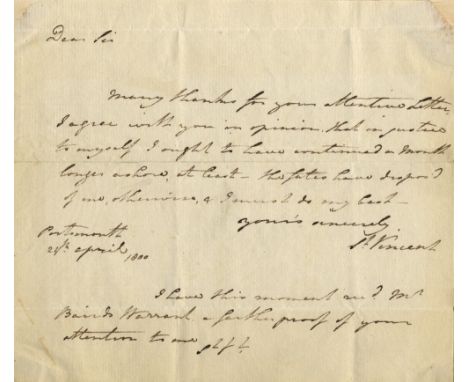 Dear Sir
Many thanks for your attentive Letter,
I agree with you in opinion, that in justice
to myself I ought to have continued a Month
longer ashore, at least - the fates have dispos'd
of me, otherwise, & I must do my best -
yours sincerely
St Vincent
Portsmouth
24th april 1800
I have this moment recd Mr
Bairds Warrant a farther proof of your
attention to me